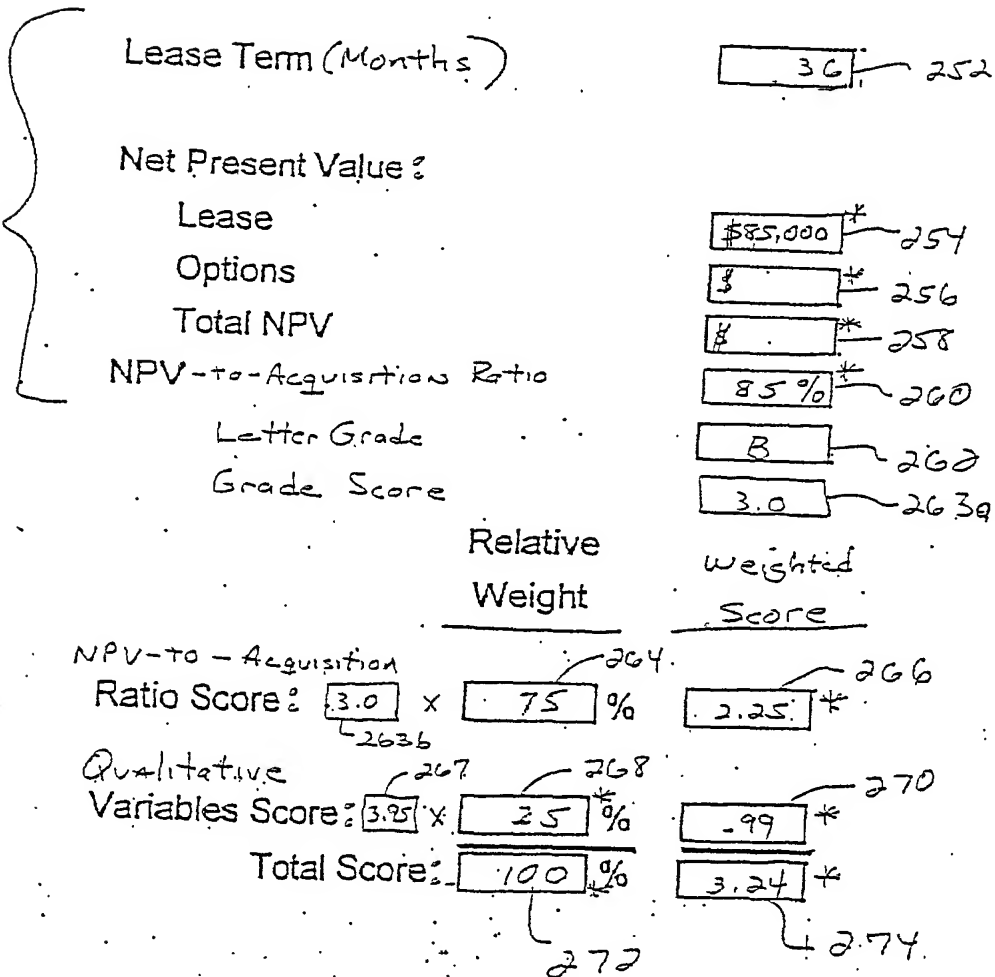 Lease Term (Months) 36 252
Net Present Value:
Lease $85,000 * 254
Options $ * 256
Total NPV $ * 258
NPV-to-Acquisition Ratio 85% * 260
Letter Grade B 262
Grade Score 3.0 263a
Relative Weight Weighted Score
NPV-to-Acquisition 264 266
Ratio Score: 3.0 x 75 % 2.25 *
263b
Qualitative 267 268 270
Variables Score: 3.95 x 25 * % .99 *
Total Score: 100 * % 3.24 *
272 274